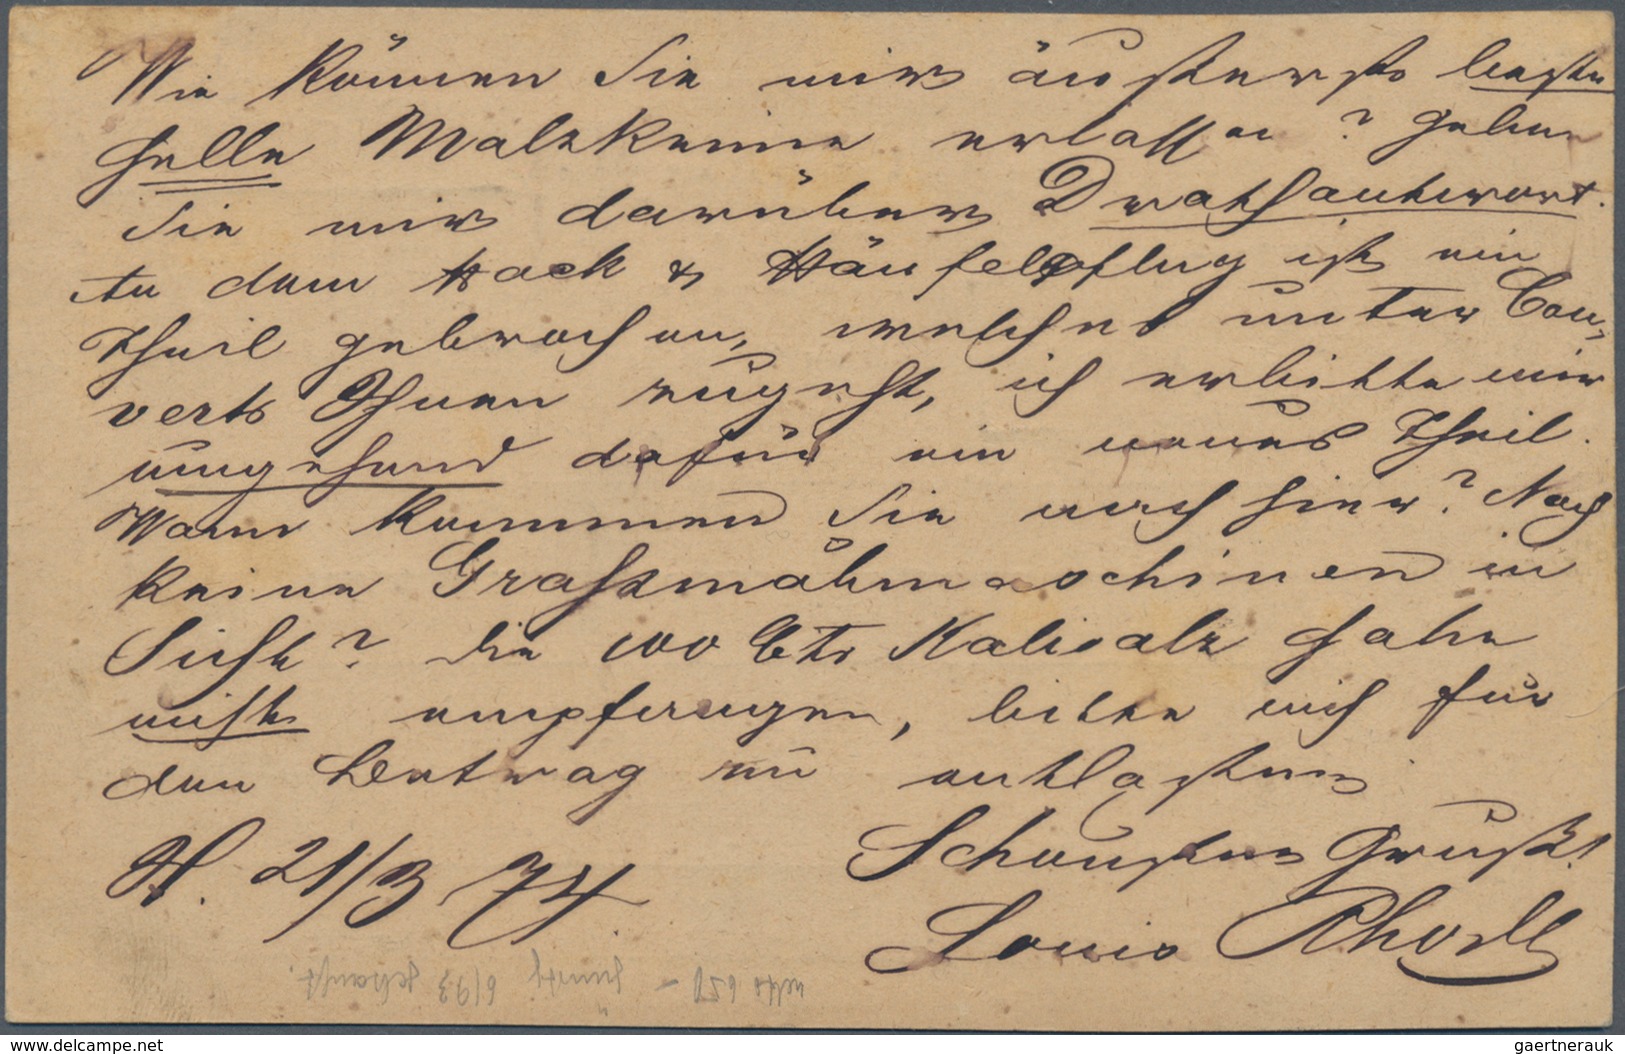 Wie können Sie mir äusserst beste
helle Malzkeime erlassen? Geben
Sie mir darüber Drathantwort.
An dem Hack & Häufelpflug ist ein
Theil gebrochen, welches unter Cou-
verts Ihnen zugeht, ich erbitte mir
umgehend dafür ein neues Theil.
Wann kommen Sie nach hier? Noch
keine Grasmähmaschinen in
Sicht? Die 100 Ctr Kalisalz habe
nicht empfangen, bitte mich für
den Betrag zu entlasten
H. 21/3 74.
Schönsten Gruß!
Louis
netto 650 –
6/93
delcampe.net
gaertnerauk